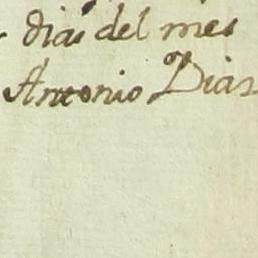 dias del mes
Antonio Dias